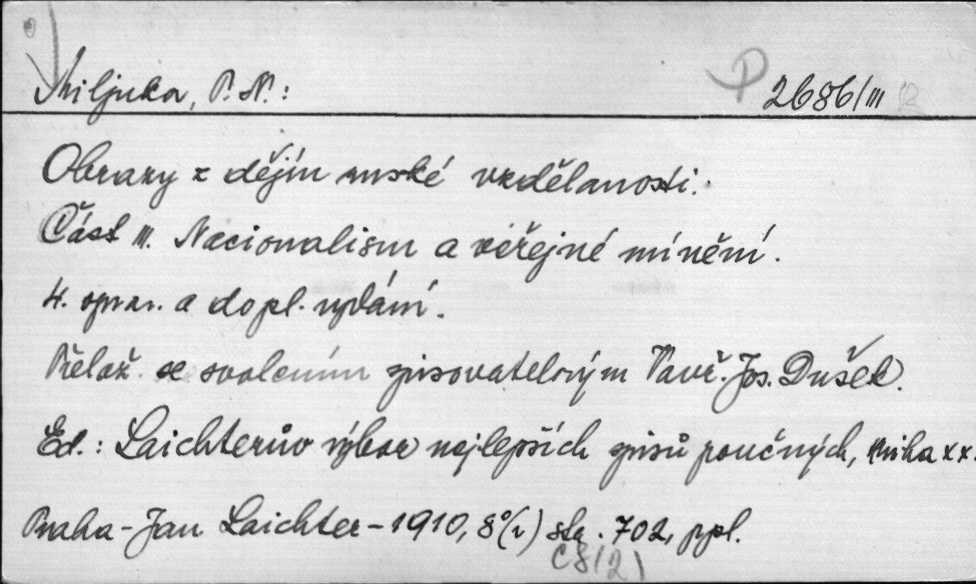 Miljukov, P. N.: P 2686/III
Obrazy z dějin ruské vzdělanosti.
Část III. Nacionalism a veřejné mínění.
4. oprav. a dopl. vydání.
Přelož. se svolením spisovatelovým Vavř. Jos. Dušek.
Ed.: Laichterův výbor nejlepších spisů poučných, kniha XX.
Praha - Jan Laichter - 1910, 8°(v) str. 702, ppl.
C8/2)